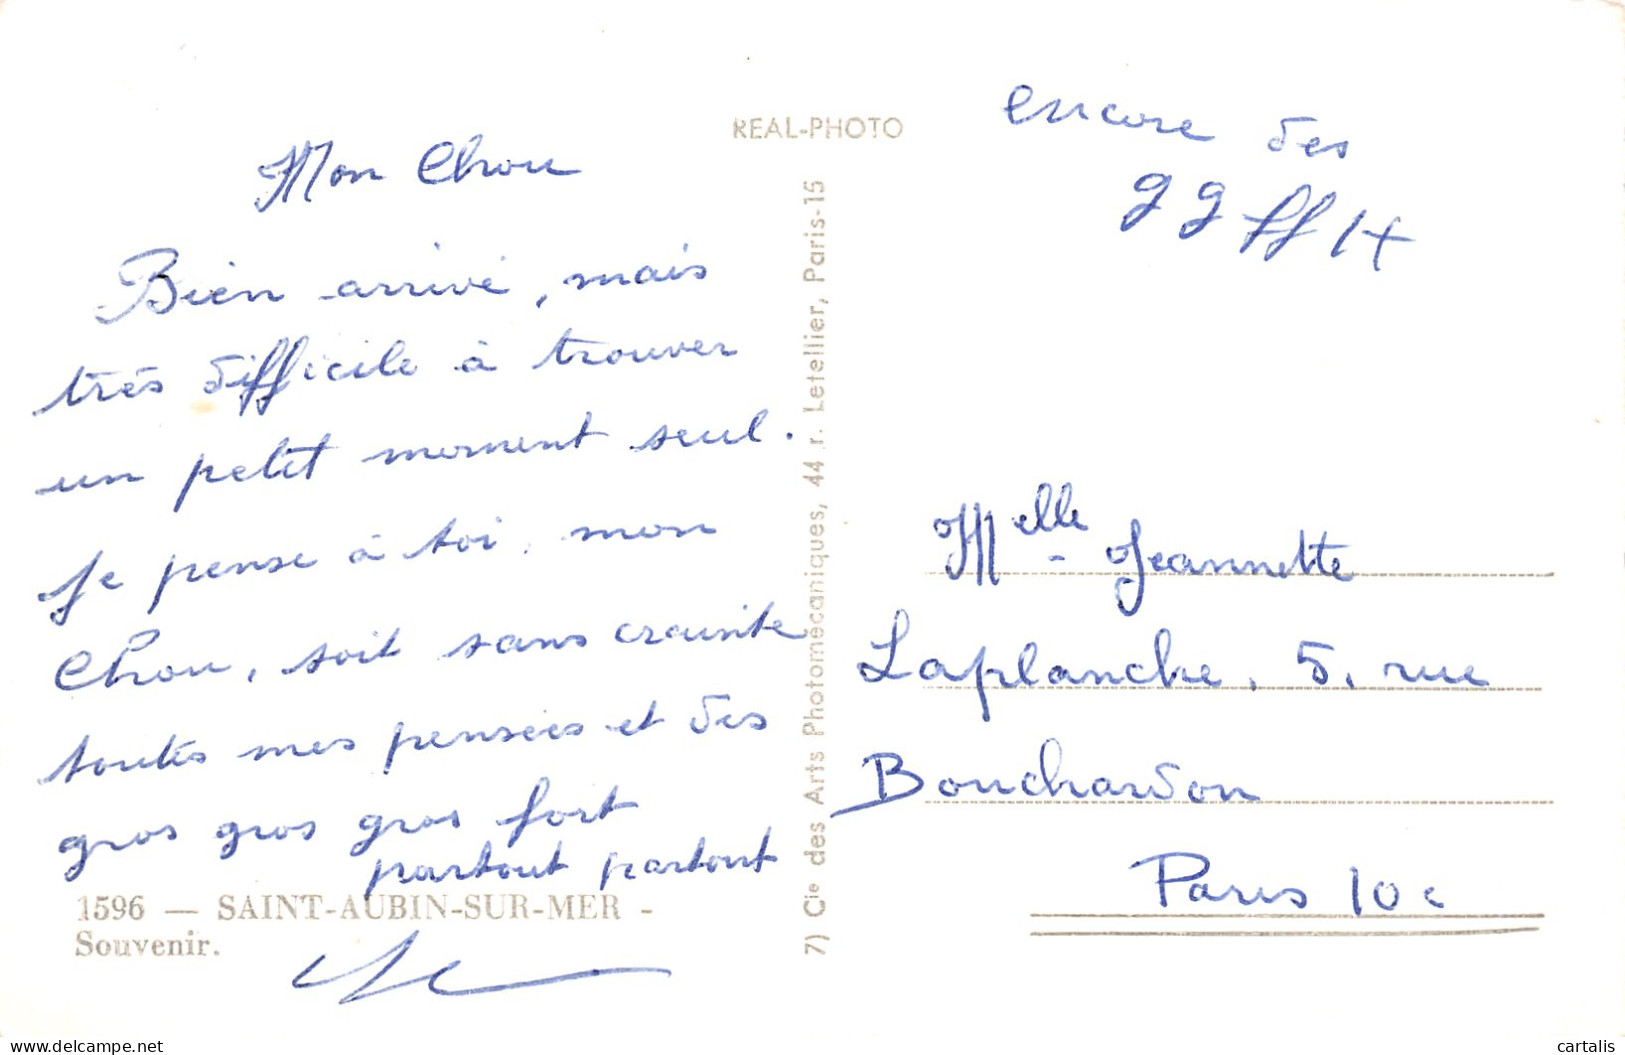 Mon Chou
Bien arrivé, mais
très difficile à trouver
un petit moment seul.
Je pense à toi, mon
Chou, soit sans crainte
toutes mes pensées et des
gros gros gros fort
partout partout
1596 — SAINT-AUBIN-SUR-MER -
Souvenir.
REAL-PHOTO
7) Cie des Arts Photomécaniques, 44, r. Letellier, Paris-15
encore des
gg ff
Melle Jeannette
Laplanche, 5, rue
Bouchardon
Paris 10e
cartalis